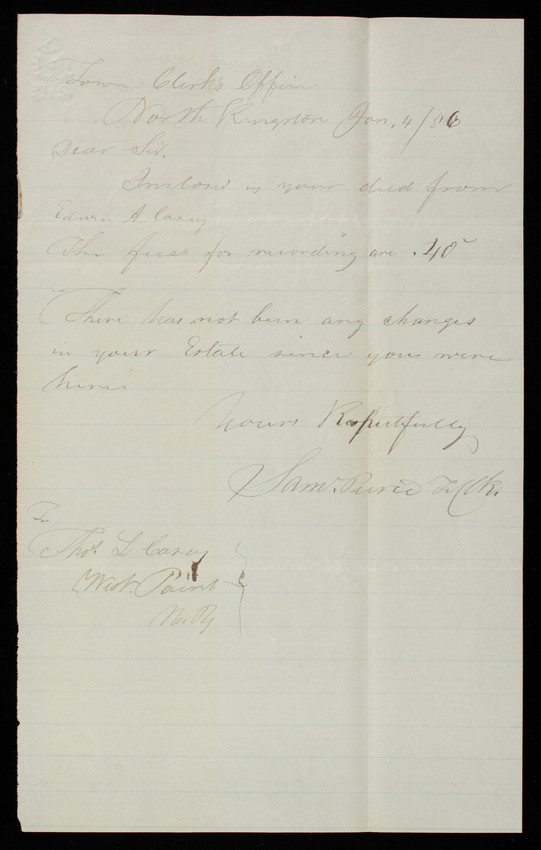 Town Clerk's Office
North Kingston Jan. 4/86
Dear Sir.
Inclosed is your deed from
Edwin A. Casey
The fees for recording are .40
There has not been any changes
in your Estate since you were
here
Yours Respectfully
Saml. Peirce T. Clk.
To
Thos. L Casey
West. Point
N.Y